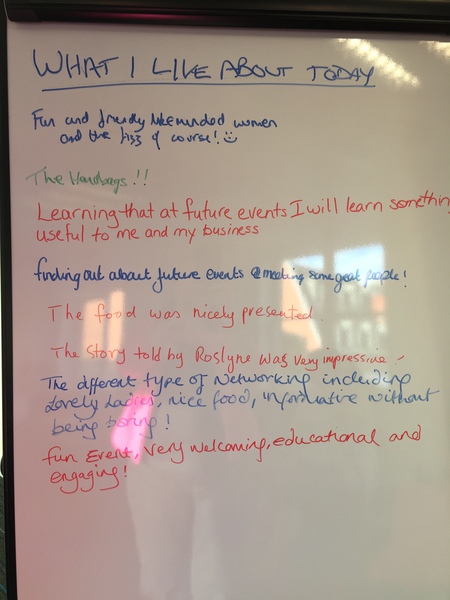 WHAT I LIKE ABOUT TODAY
Fun and friendly likeminded women
and the fizz of course! ☺
The Handbags!!
Learning that at future events I will learn somethin
useful to me and my business
finding out about future events & meeting some great people!
The food was nicely presented.
The story told by Roslyne was very impressive
The different type of Networking including
Lovely Ladies, nice food, informative without
being boring!
fun Event, Very welcoming, educational and
engaging!